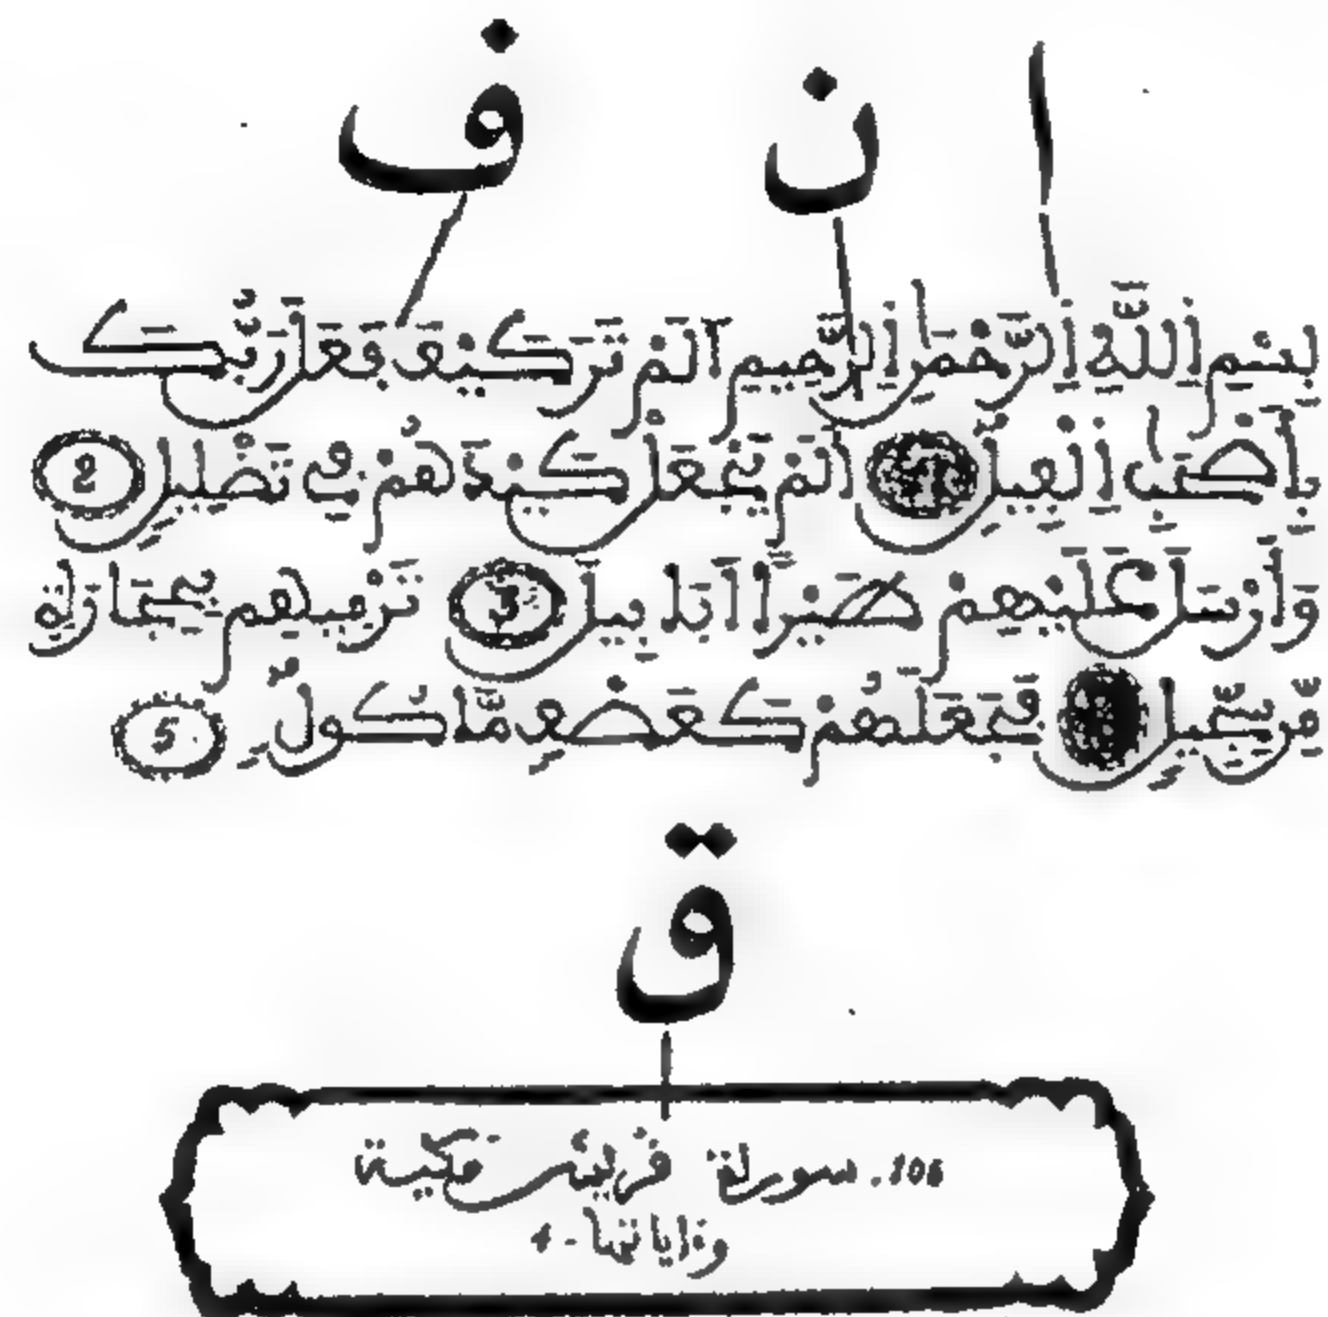 ا ن ف
بِسْمِ اِللَّهِ اِلرَّحْمَٰنِ اِلرَّحِيمِ أَلَمْ تَرَ كَيْفَ فَعَلَ رَبُّكَ
بِأَصْحَٰبِ اِلْفِيلِ 1 أَلَمْ يَجْعَلْ كَيْدَهُمْ فِي تَضْلِيلٍ 2
وَأَرْسَلَ عَلَيْهِمْ طَيْراً أَبَابِيلَ 3 تَرْمِيهِم بِحِجَارَةٍ
مِّن سِجِّيلٍ 4 فَجَعَلَهُمْ كَعَصْفٍ مَّاكُولٍ 5
ق
106. سورة قريش مكية
وءاياتها - 4